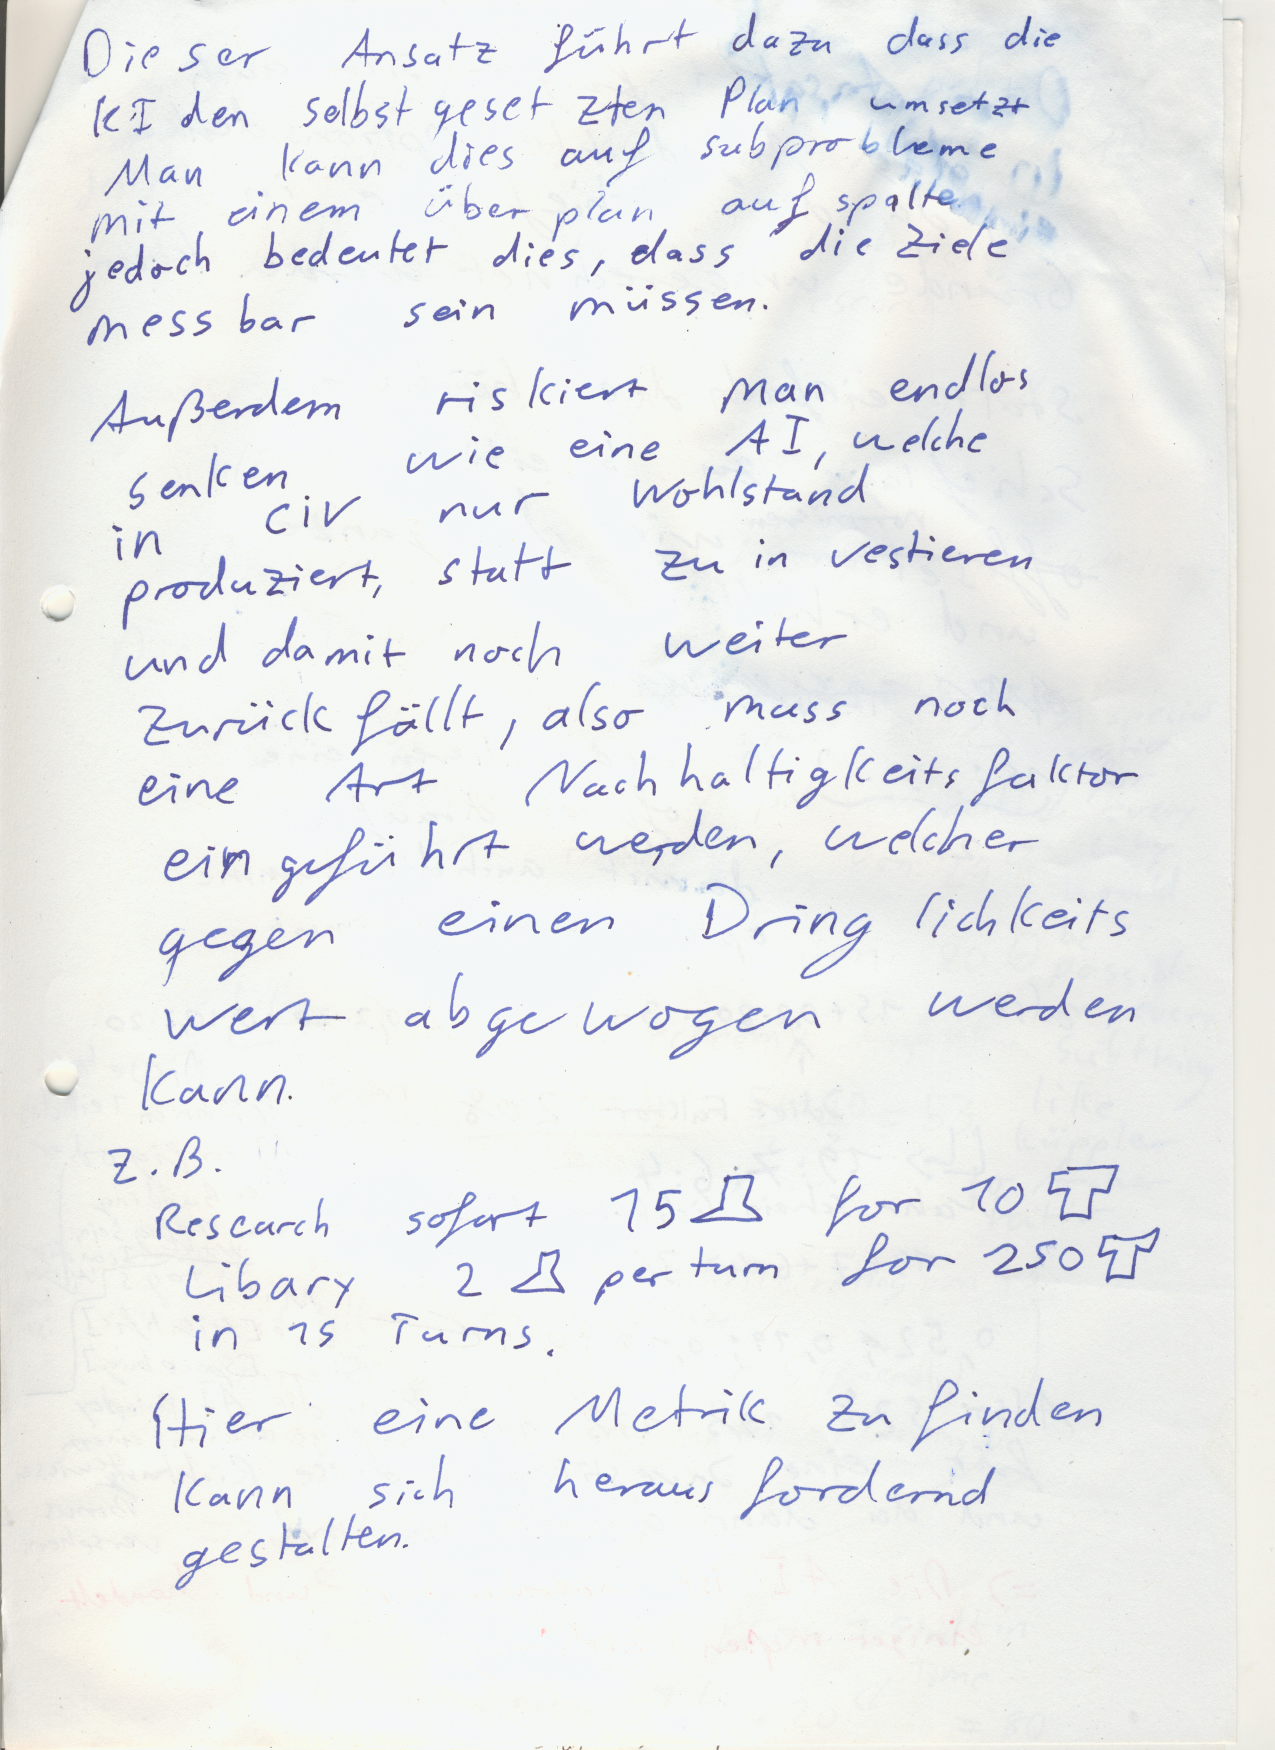 Dieser Ansatz führt dazu dass die
KI den selbst gesetzten Plan umsetzt
Man kann dies auf subprobleme
mit einem Überplan aufspalten
jedoch bedeutet dies, dass die Ziele
messbar sein müssen.
Außerdem riskiert man endlos
senken wie eine AI, welche
in civ nur Wohlstand
produziert, statt zu investieren
und damit noch weiter
zurück fällt, also muss noch
eine Art Nachhaltigkeitsfaktor
eingeführt werden, welcher
gegen einen Dringlichkeits
wert abgewogen werden
kann.
z.B.
Research sofort 15 for 10
Libary 2 per turn for 250
in 15 Turns.
Hier eine Metrik zu finden
kann sich herausfordernd
gestalten.